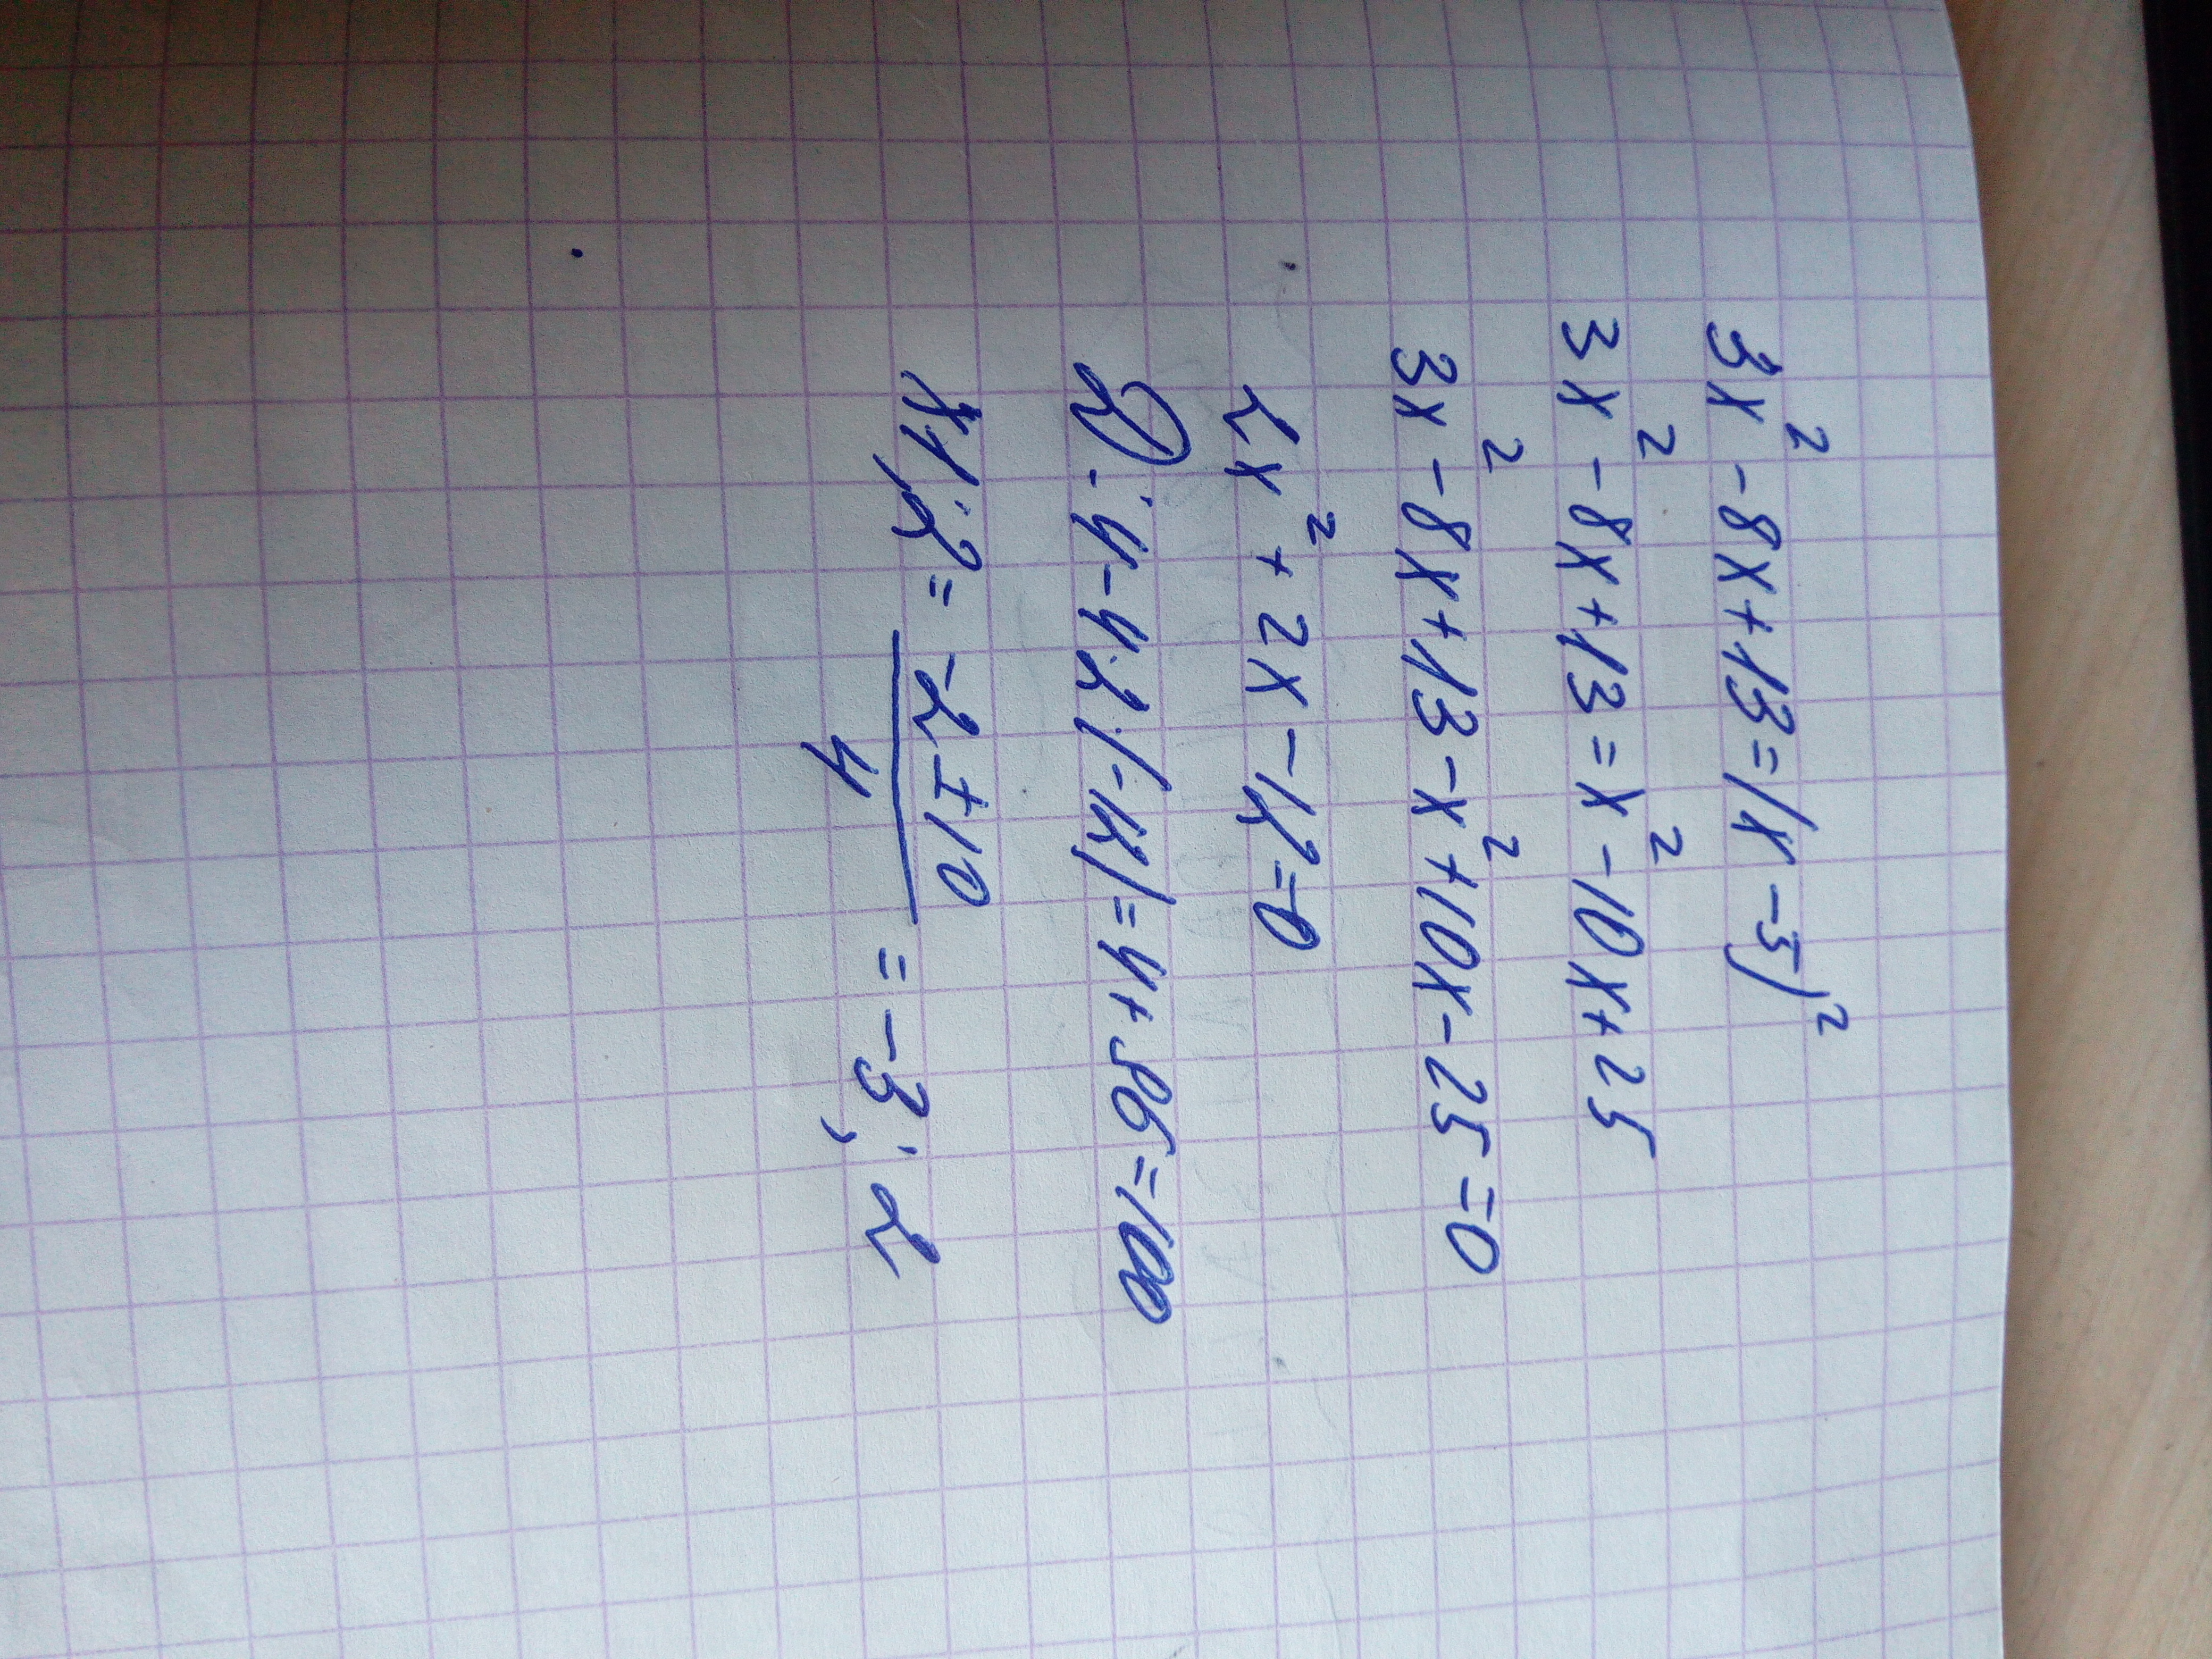 3x² - 8x + 13 = (x - 5)²
3x² - 8x + 13 = x² - 10x + 25
3x² - 8x + 13 - x² + 10x - 25 = 0
2x² + 2x - 12 = 0
D: 4 - 4·2·(-12) = 4 + 96 = 100
x1;2 = (-2 ± 10)/4 = -3; 2